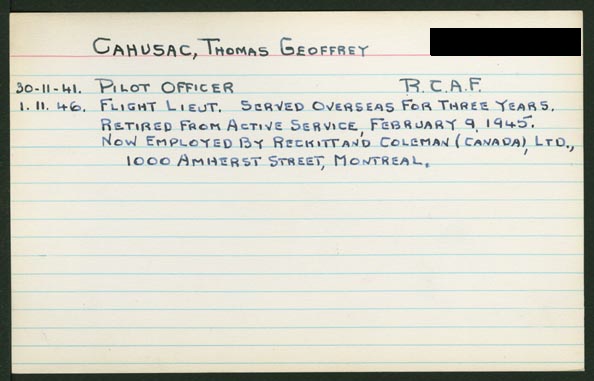 CAHUSAC, THOMAS GEOFFREY
30-11-41. PILOT OFFICER R.C.A.F.
1.11.46. FLIGHT LIEUT. SERVED OVERSEAS FOR THREE YEARS.
RETIRED FROM ACTIVE SERVICE, FEBRUARY 9, 1945.
NOW EMPLOYED BY RECKITT AND COLEMAN (CANADA), LTD.,
1000 AMHERST STREET, MONTREAL.